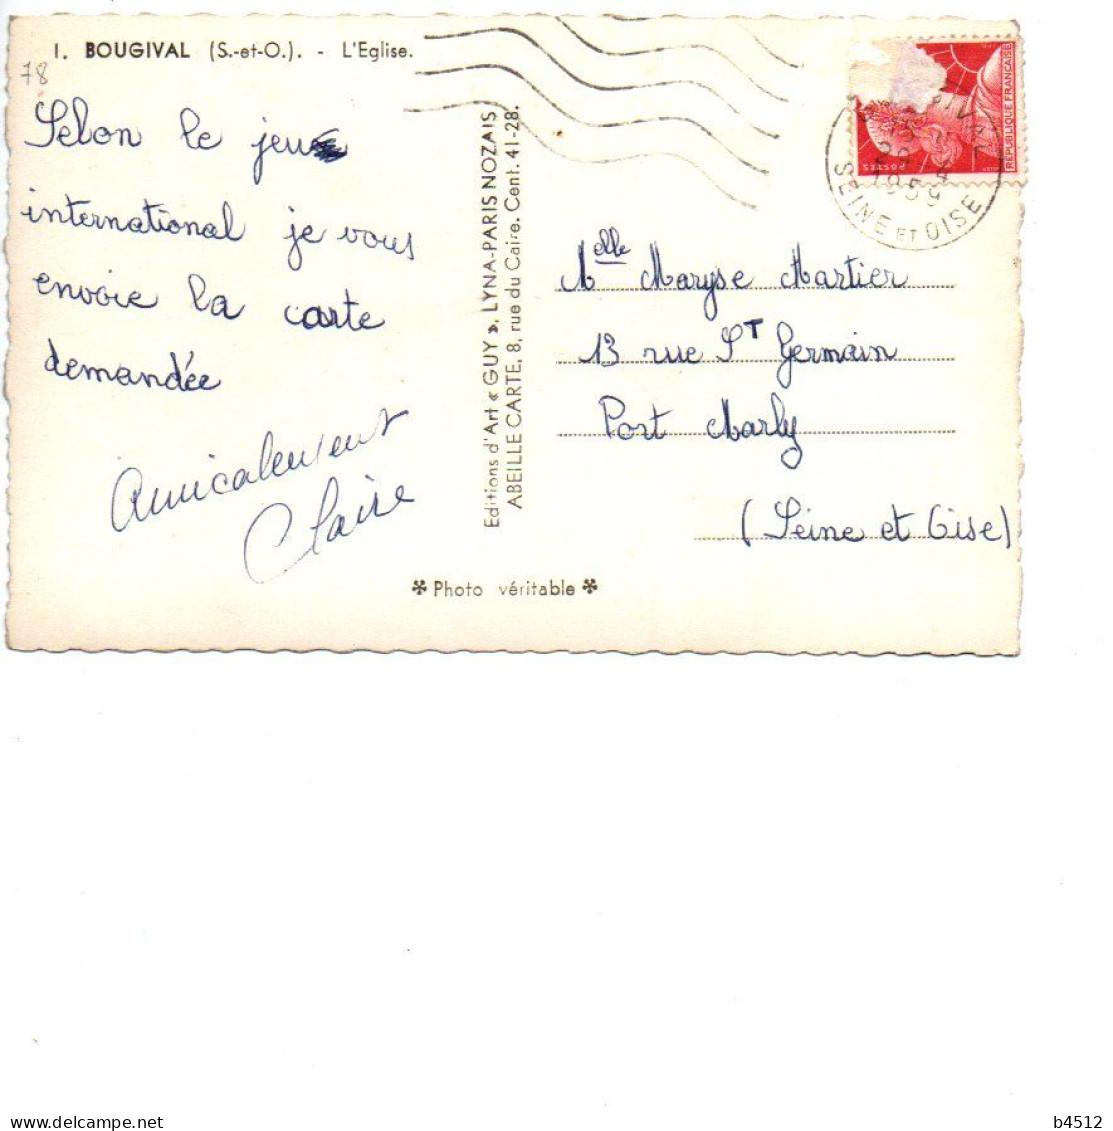 1. BOUGIVAL (S.-et-O.). - L'Eglise.
78
Selon le jeu
international je vous
envoie la carte
demandée
Amicalement
Claire
Editions d'Art « GUY », LYNA-PARIS NOZAIS
ABEILLE CARTE, 8, rue du Caire. Cent. 41-28.
REPUBLIQUE FRANÇAISE
POSTES
1959
SEINE ET OISE
Melle Maryse Martier
13 rue ST Germain
Port Marly
(Seine et Oise)
✻ Photo véritable ✻
www.delcampe.net
b4512